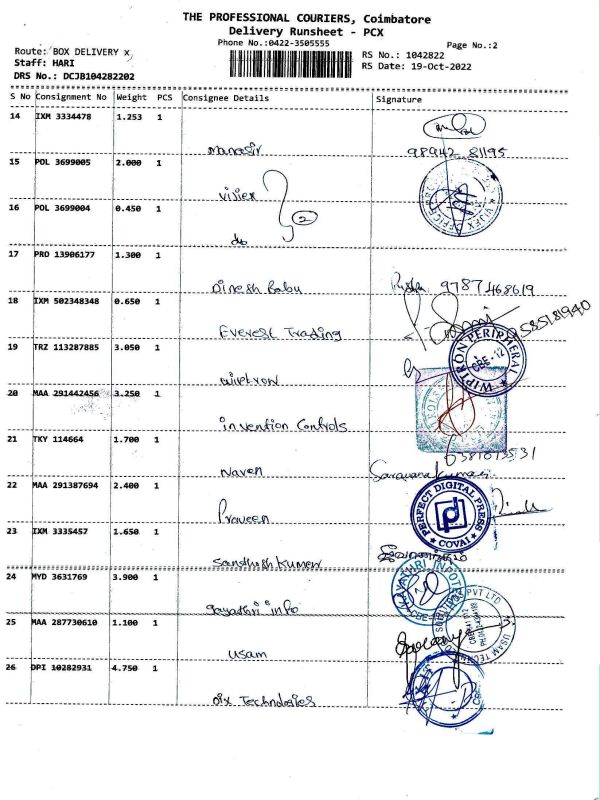 THE PROFESSIONAL COURIERS, Coimbatore
Delivery Runsheet - PCX
Phone No.:0422-3505555
Page No.:2
Route: BOX DELIVERY X
RS No.: 1042822
Staff: HARI
RS Date: 19-Oct-2022
DRS No.: DCJB104282202
S No Consignment No Weight PCS Consignee Details Signature
14 IXM 3334478 1.253 1
98942 81195
15 POL 3699005 2.000 1
Vijiex
16 POL 3699004 0.450 1
2
do
17 PRO 13906177 1.300 1
Dinesh Babu 9787468619
18 IXM 502348348 0.650 1
Everest Trading
19 TRZ 113287885 3.050 1
WIPTRON PERIPHERAL
CBE-12
wiptron
20 MAA 291442456 3.250 1
invention Controls
21 TKY 114664 1.700 1
Naven Saravanakumar
22 MAA 291387694 2.400 1
PERFECT DIGITAL PRESS
COVAI
Praveen
23 IXM 3335457 1.650 1
Santhosh Kumar
24 MYD 3631769 3.900 1
GAYATHRI INFOTECH
gayathri info
25 MAA 287730610 1.100 1
PVT LTD
USAM TECHNO
Usam
26 DPI 10282931 4.750 1
Dix Technologies